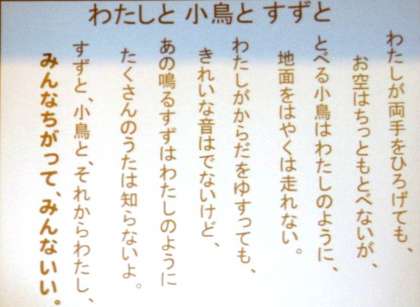 わたしと 小鳥と すずと
わたしが両手をひろげても、
お空はちっともとべないが、
とべる小鳥はわたしのように、
地面をはやくは走れない。
わたしがからだをゆすっても、
きれいな音はでないけど、
あの鳴るすずはわたしのように
たくさんのうたは知らないよ。
すずと、小鳥と、それからわたし、
みんなちがって、みんないい。